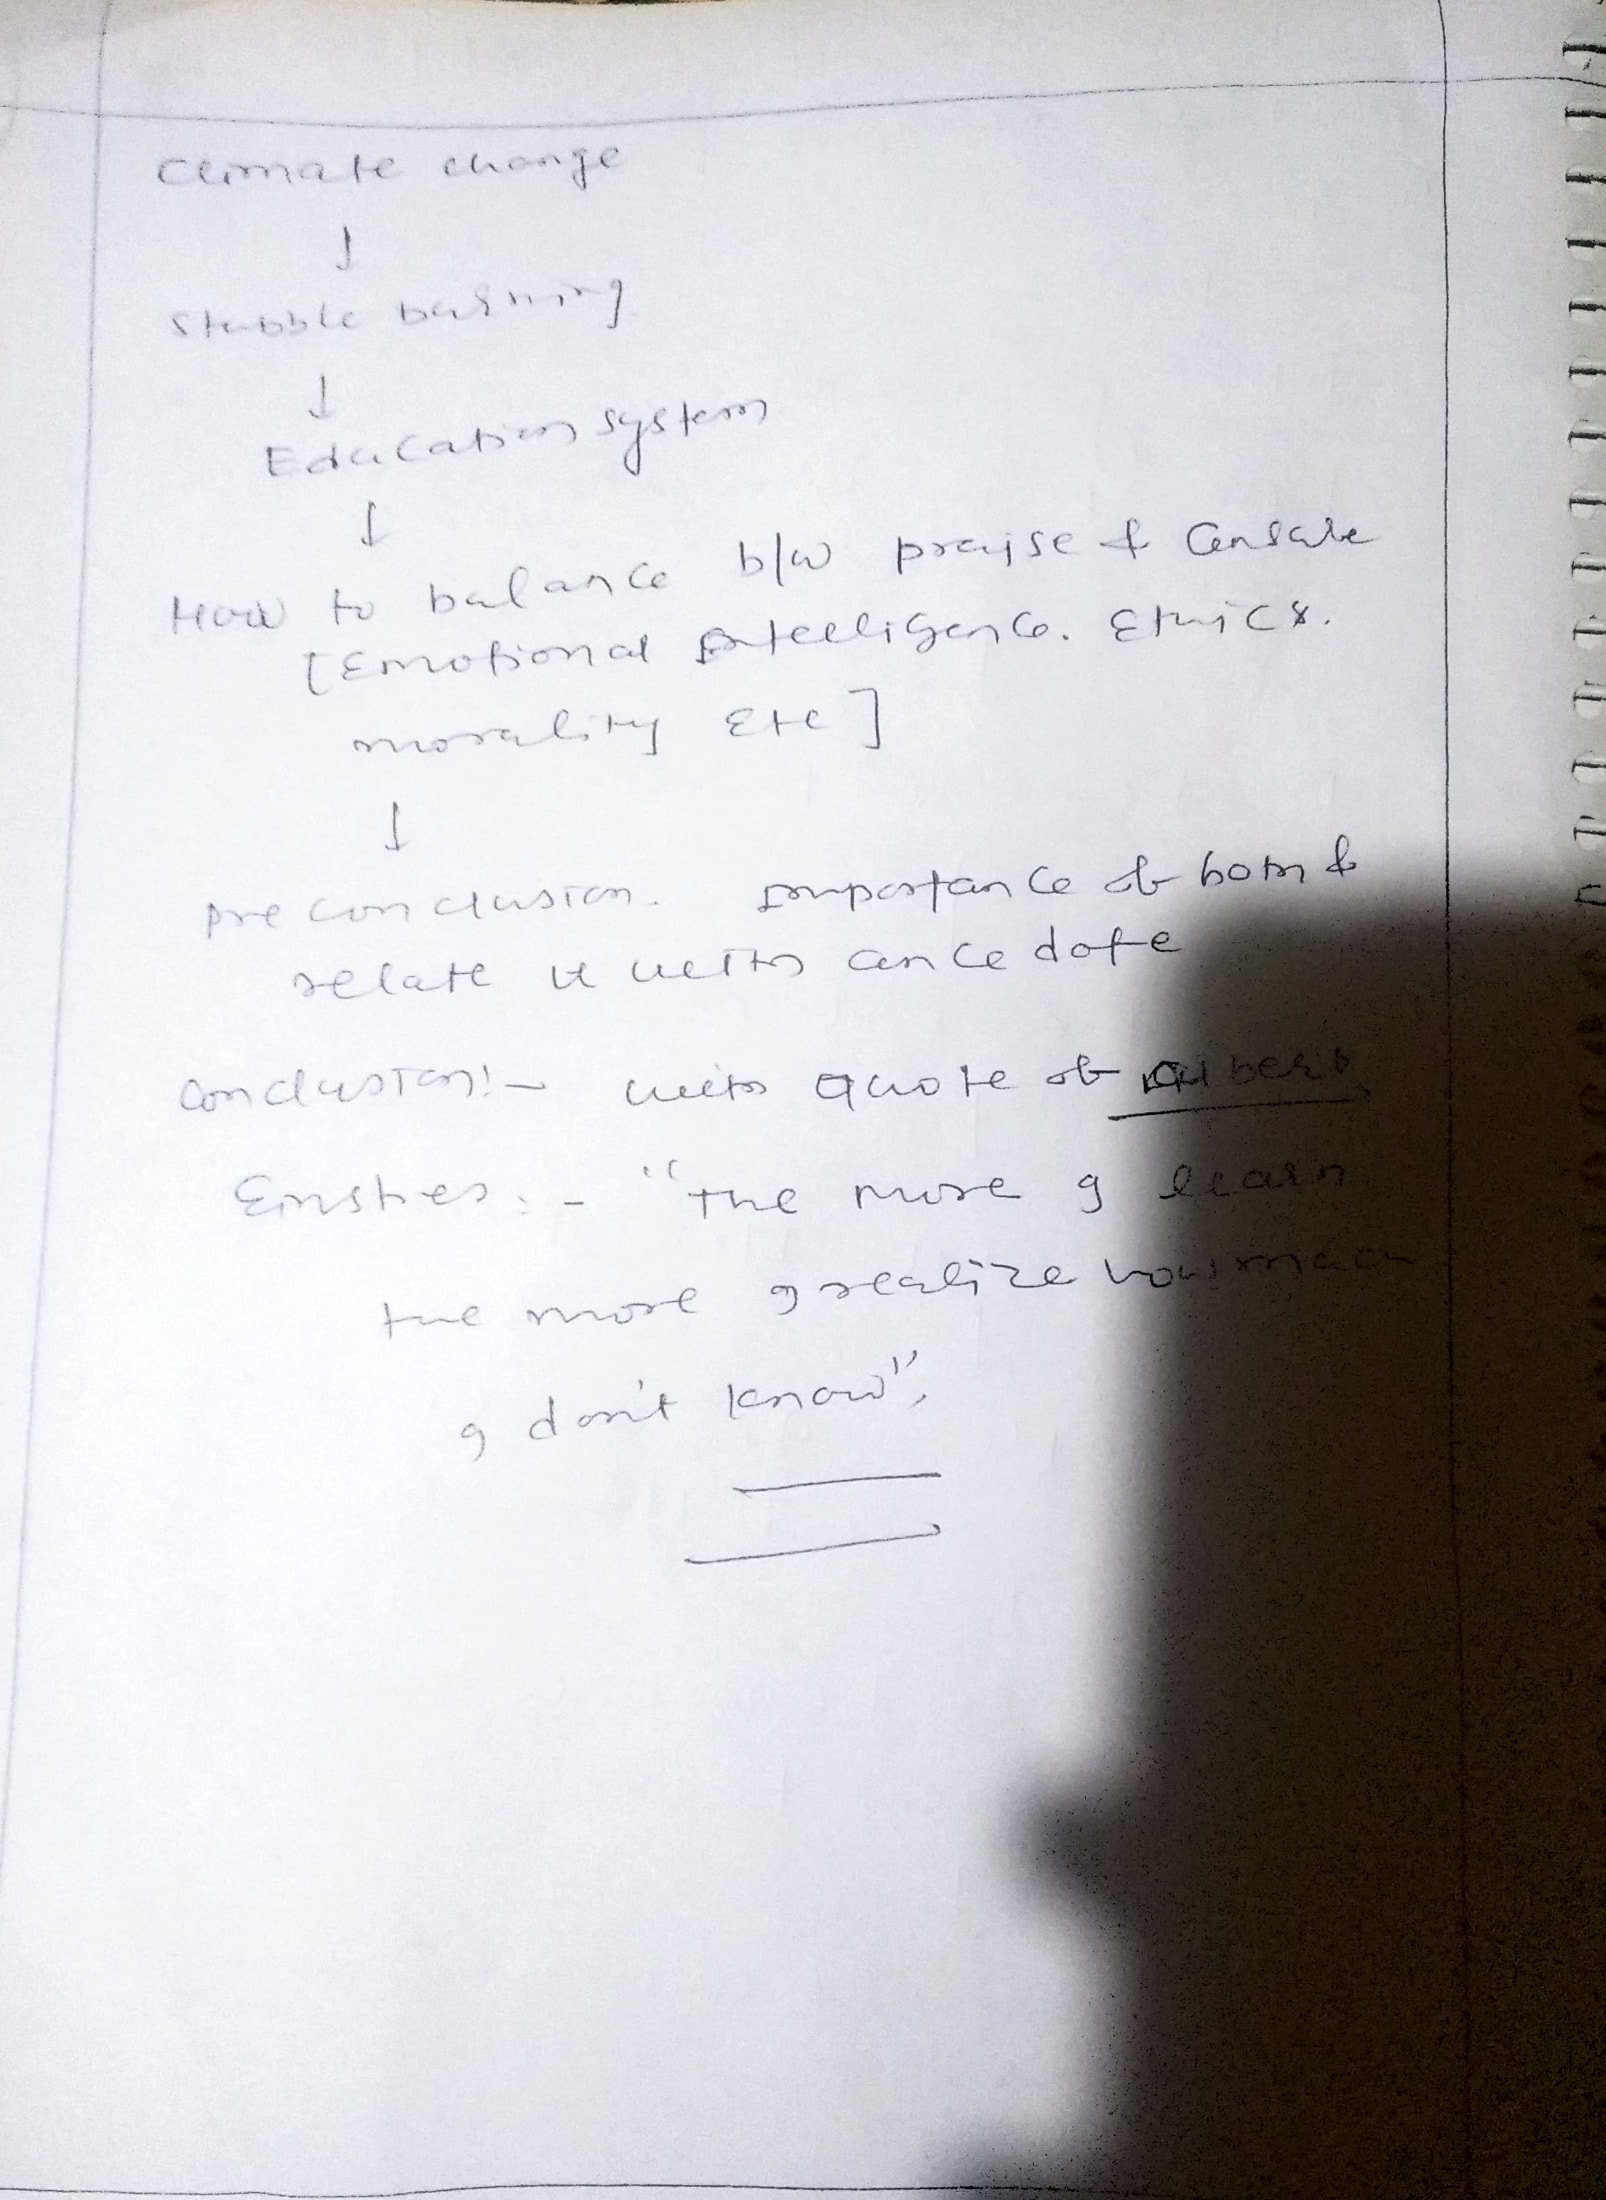 Climate change
↓
Stubble burning
↓
Education system
↓
How to balance b/w praise & Censure
[Emotional Intelligence. Ethics.
morality Etc]
↓
pre conclusion. Importance of both &
relate it with ancedote
Conclusion:- with quote of Albert
Einstien:- "The more I learn
the more I realize how much
I don't know".